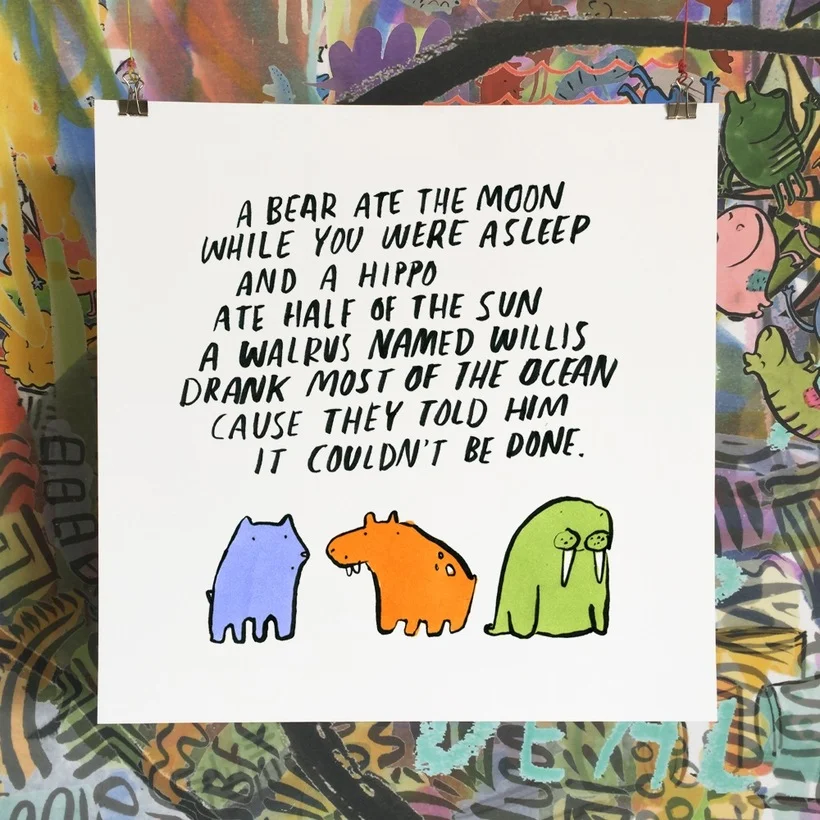 A BEAR ATE THE MOON
WHILE YOU WERE ASLEEP
AND A HIPPO
ATE HALF OF THE SUN
A WALRUS NAMED WILLIS
DRANK MOST OF THE OCEAN
CAUSE THEY TOLD HIM
IT COULDN'T BE DONE.